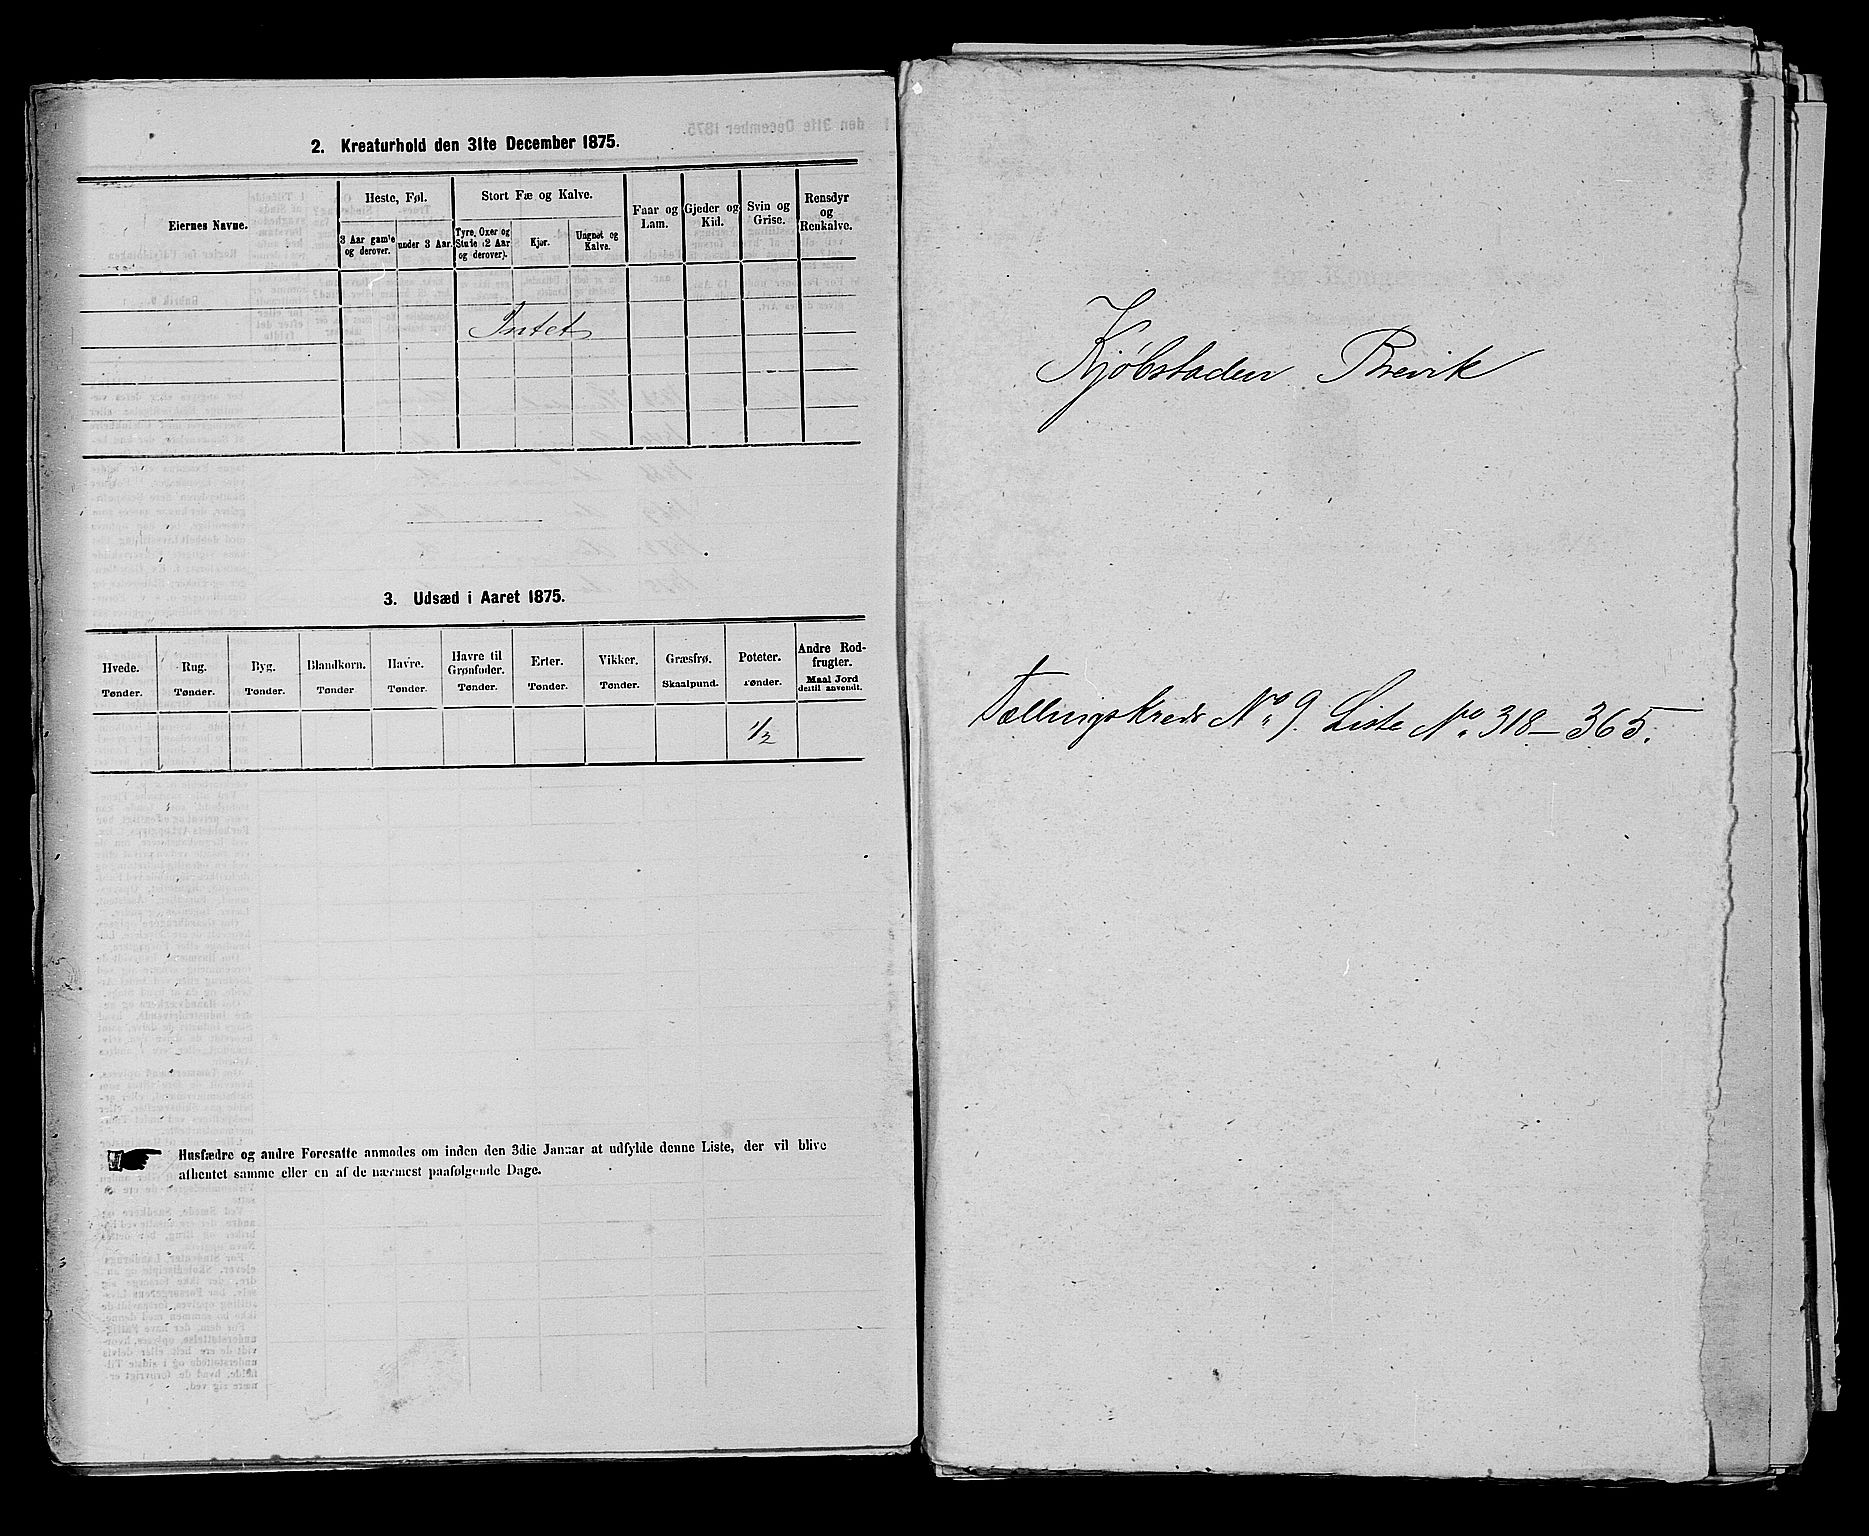 2. Kreaturhold den 31te December 1875.
Eiernes Navne.
Heste, Føl.
Stort Fæ og Kalve.
Faar og Lam.
Gjeder og Kid.
Svin og Grise.
Rensdyr og Renkalve.
3 Aar gamle og derover.
under 3 Aar.
Tyre, Oxer og Stude (2 Aar og derover).
Kjør.
Ungnøt og Kalve.
Intet
3. Udsæd i Aaret 1875.
Hvede. Tønder.
Rug. Tønder.
Byg. Tønder.
Blandkorn. Tønder
Havre. Tønder.
Havre til Grønfoder. Tønder.
Erter. Tønder.
Vikker. Tønder.
Græsfrø. Skaalpund.
Poteter. Tønder.
Andre Rodfrugter. Maal Jord dertil anvendt.
1/2
Husfædre og andre Foresatte anmodes om inden den 3die Januar at udfylde denne Liste, der vil blive
afhentet samme eller en af de nærmest paafølgende Dage.
Kjøbstaden Brevik
Tællingskreds No 9. Liste No. 318–365.